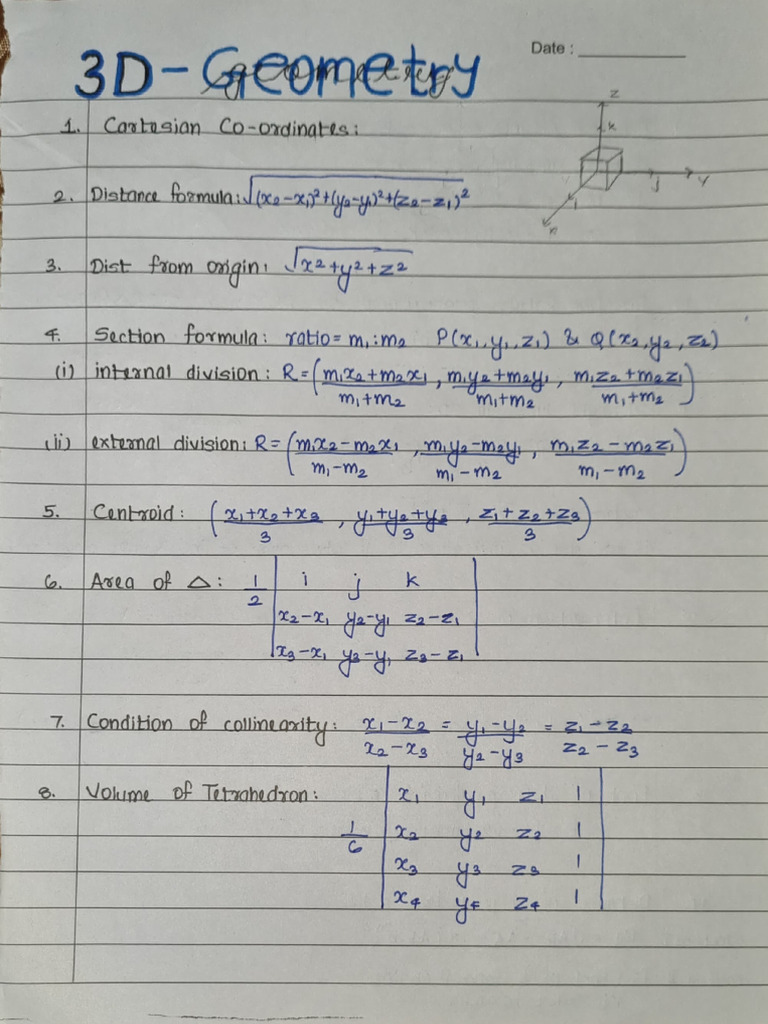 Date :
3D-Geometry
1. Cartesian Co-ordinates:
z
k
j
y
i
x
2. Distance formula: √(x₂-x₁)²+(y₂-y₁)²+(z₂-z₁)²
3. Dist from origin: √x²+y²+z²
4. Section formula: ratio= m₁:m₂ P(x₁,y₁,z₁) & Q(x₂,y₂,z₂)
(i) internal division: R=(m₁x₂+m₂x₁/m₁+m₂, m₁y₂+m₂y₁/m₁+m₂, m₁z₂+m₂z₁/m₁+m₂)
(ii) external division: R=(m₁x₂-m₂x₁/m₁-m₂, m₁y₂-m₂y₁/m₁-m₂, m₁z₂-m₂z₁/m₁-m₂)
5. Centroid: (x₁+x₂+x₃/3, y₁+y₂+y₃/3, z₁+z₂+z₃/3)
6. Area of △: 1/2 | i j k |
| x₂-x₁ y₂-y₁ z₂-z₁ |
| x₃-x₁ y₃-y₁ z₃-z₁ |
7. Condition of collinearity: x₁-x₂/x₂-x₃ = y₁-y₂/y₂-y₃ = z₁-z₂/z₂-z₃
8. Volume of Tetrahedron: | x₁ y₁ z₁ 1 |
1/6 | x₂ y₂ z₂ 1 |
| x₃ y₃ z₃ 1 |
| x₄ y₄ z₄ 1 |